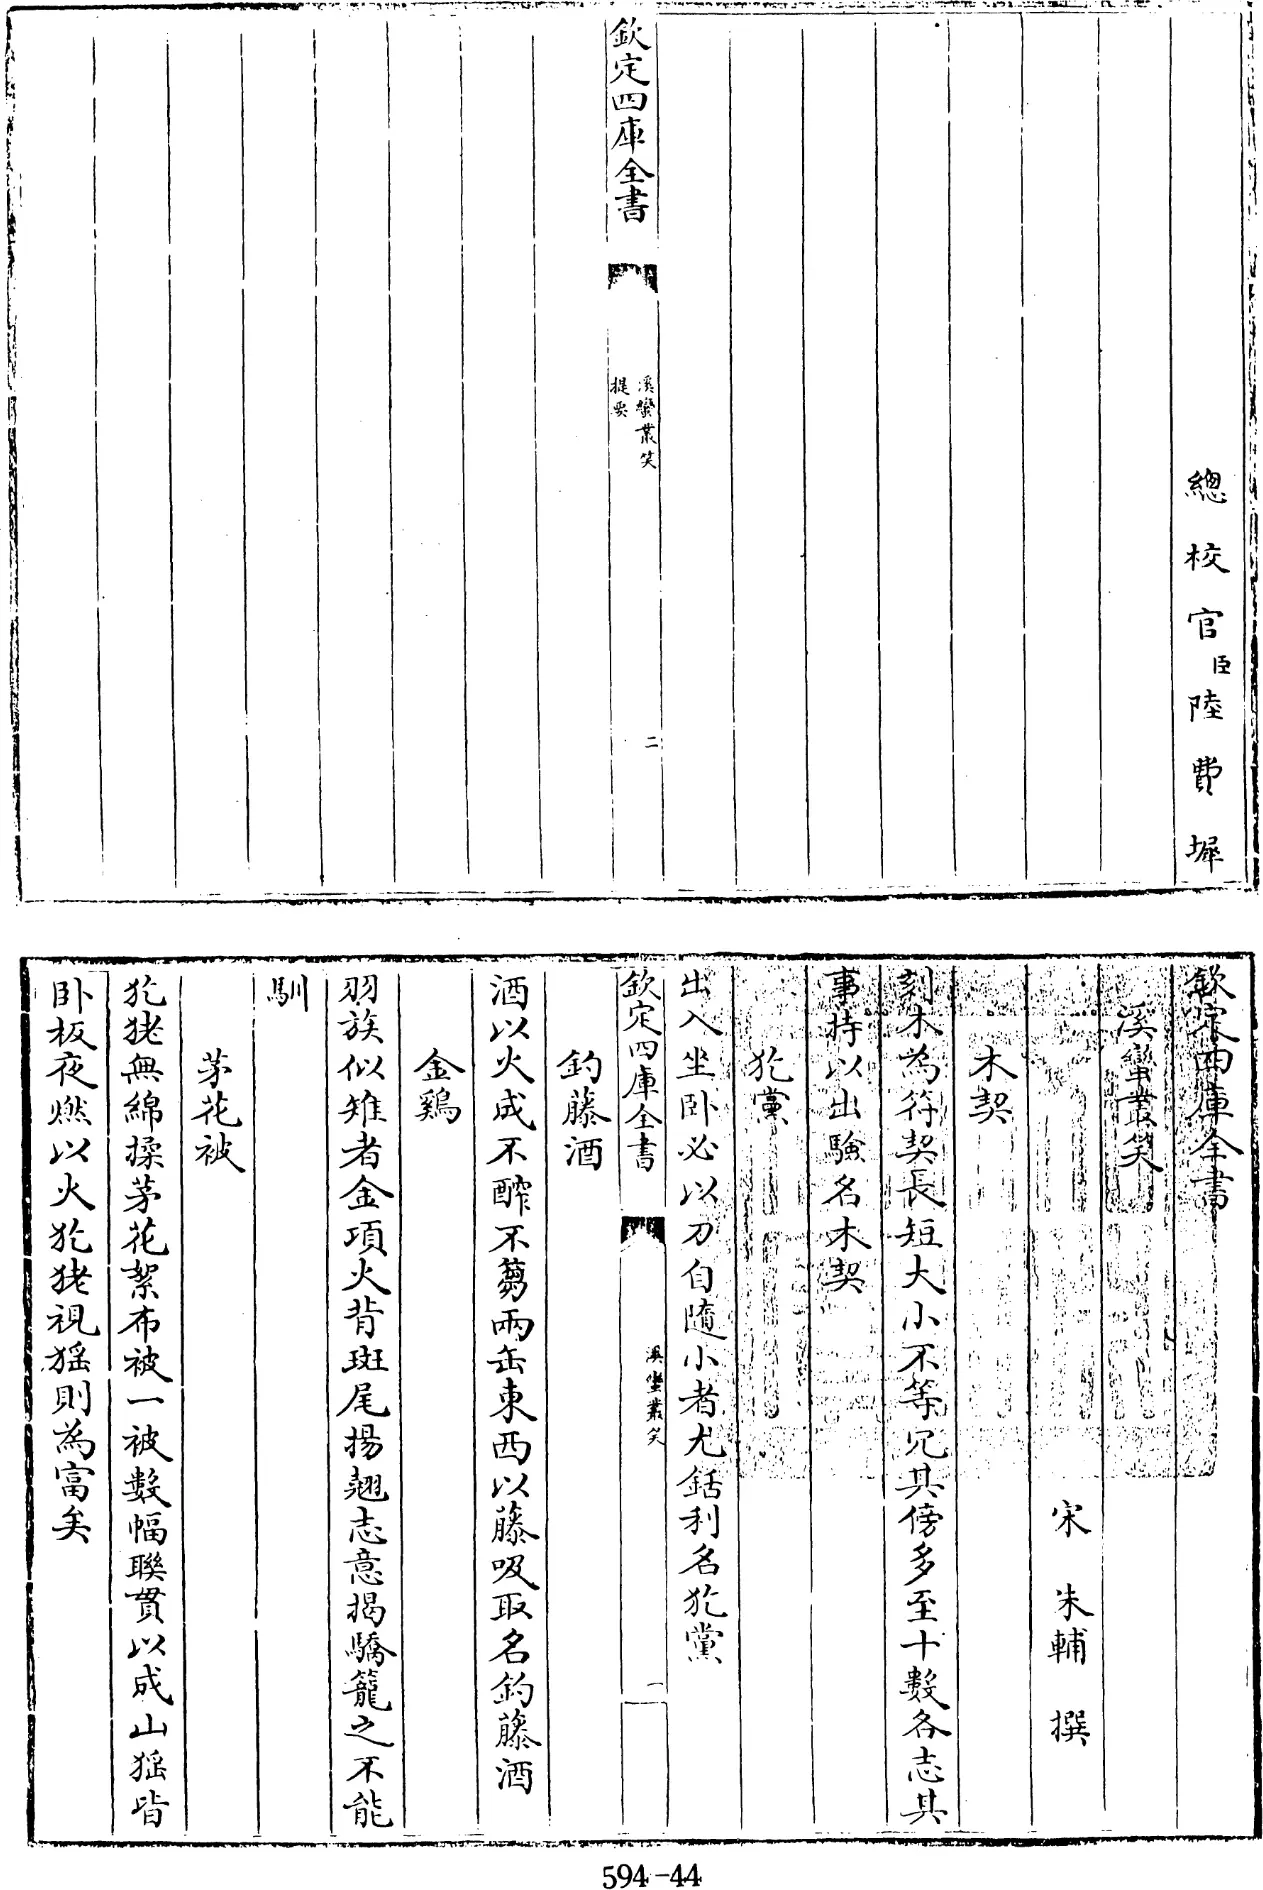 總校官臣陸費墀
欽定四庫全書
溪蠻叢笑
提要
二
欽定四庫全書
溪蠻叢笑
宋 朱輔 撰
木契
刻木為符契長短大小不等冗其傍多至十數各志其
事持以出驗名木契
犵黨
出入坐卧必以刀自隨小者尤銛利名犵黨
欽定四庫全書
溪蠻叢笑
一
釣藤酒
酒以火成不酢不蒭兩缶東西以藤吸取名釣藤酒
金鷄
羽族似雉者金項火背斑尾揚翹志意揭驕籠之不能
馴
茅花被
犵狫無綿揉茅花絮布被一被數幅聯貫以成山猺皆
卧板夜燃以火犵狫視猺則為富矣
594-44